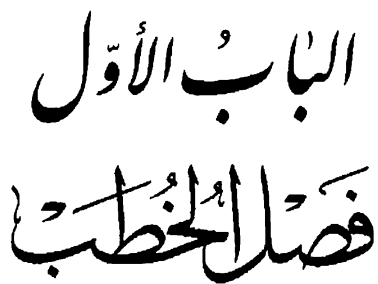 البابُ الأوّل
فصْل الخُطَب